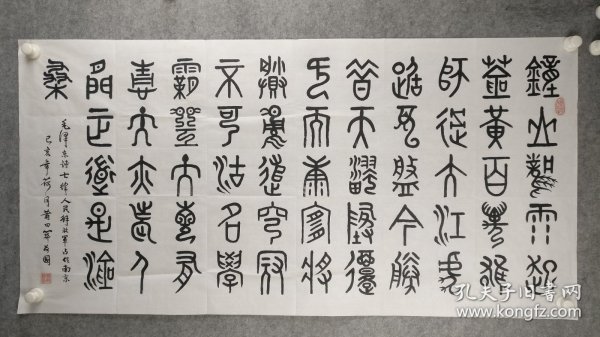 鐘山風雨起
蒼黃百萬雄
師過大江虎
踞龍盤今勝
昔天翻地覆
慨而慷宜將
剩勇追窮寇
不可沽名學
霸王天若有
情天亦老人
間正道是滄
桑
毛澤東詩七律人民解放軍占領南京
己亥年荷月
孔夫子旧书网
www.kongfz.com